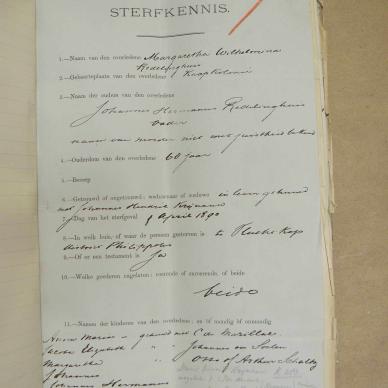 STERFKENNIS.
1.—Naam van den overledene Margaretha Wilhelmina
Redelinghuis
2.—Geboorteplaats van den overledene Kaapkolonie
3.—Naam der ouders van den overledene
Johannes Hermanus Redelinghuis
Vader
naam van moeder niet met juistheid bekend
4.—Ouderdom van den overledene 60 jaar
5.—Beroep
6.—Getrouwd of ongetrouwd; weduwnaar of weduwe in leven getrouwd
met Johannes Hendrik
7.—Dag van het sterfgeval 9 April 1890
8.—In welk huis, of waar de persoon gestorven is te Kop
district Philippolis
9.—Of er een testament is Ja
10.—Welke goederen nagelaten: roerende of onroerende, of beide
beide
11.—Namen der kinderen van den overledene; en of mondig of onmondig
Anna Maria getrouwd met C de
Johannes van
Margaretha " " Arthur
Johannes
Johannes Hermanus